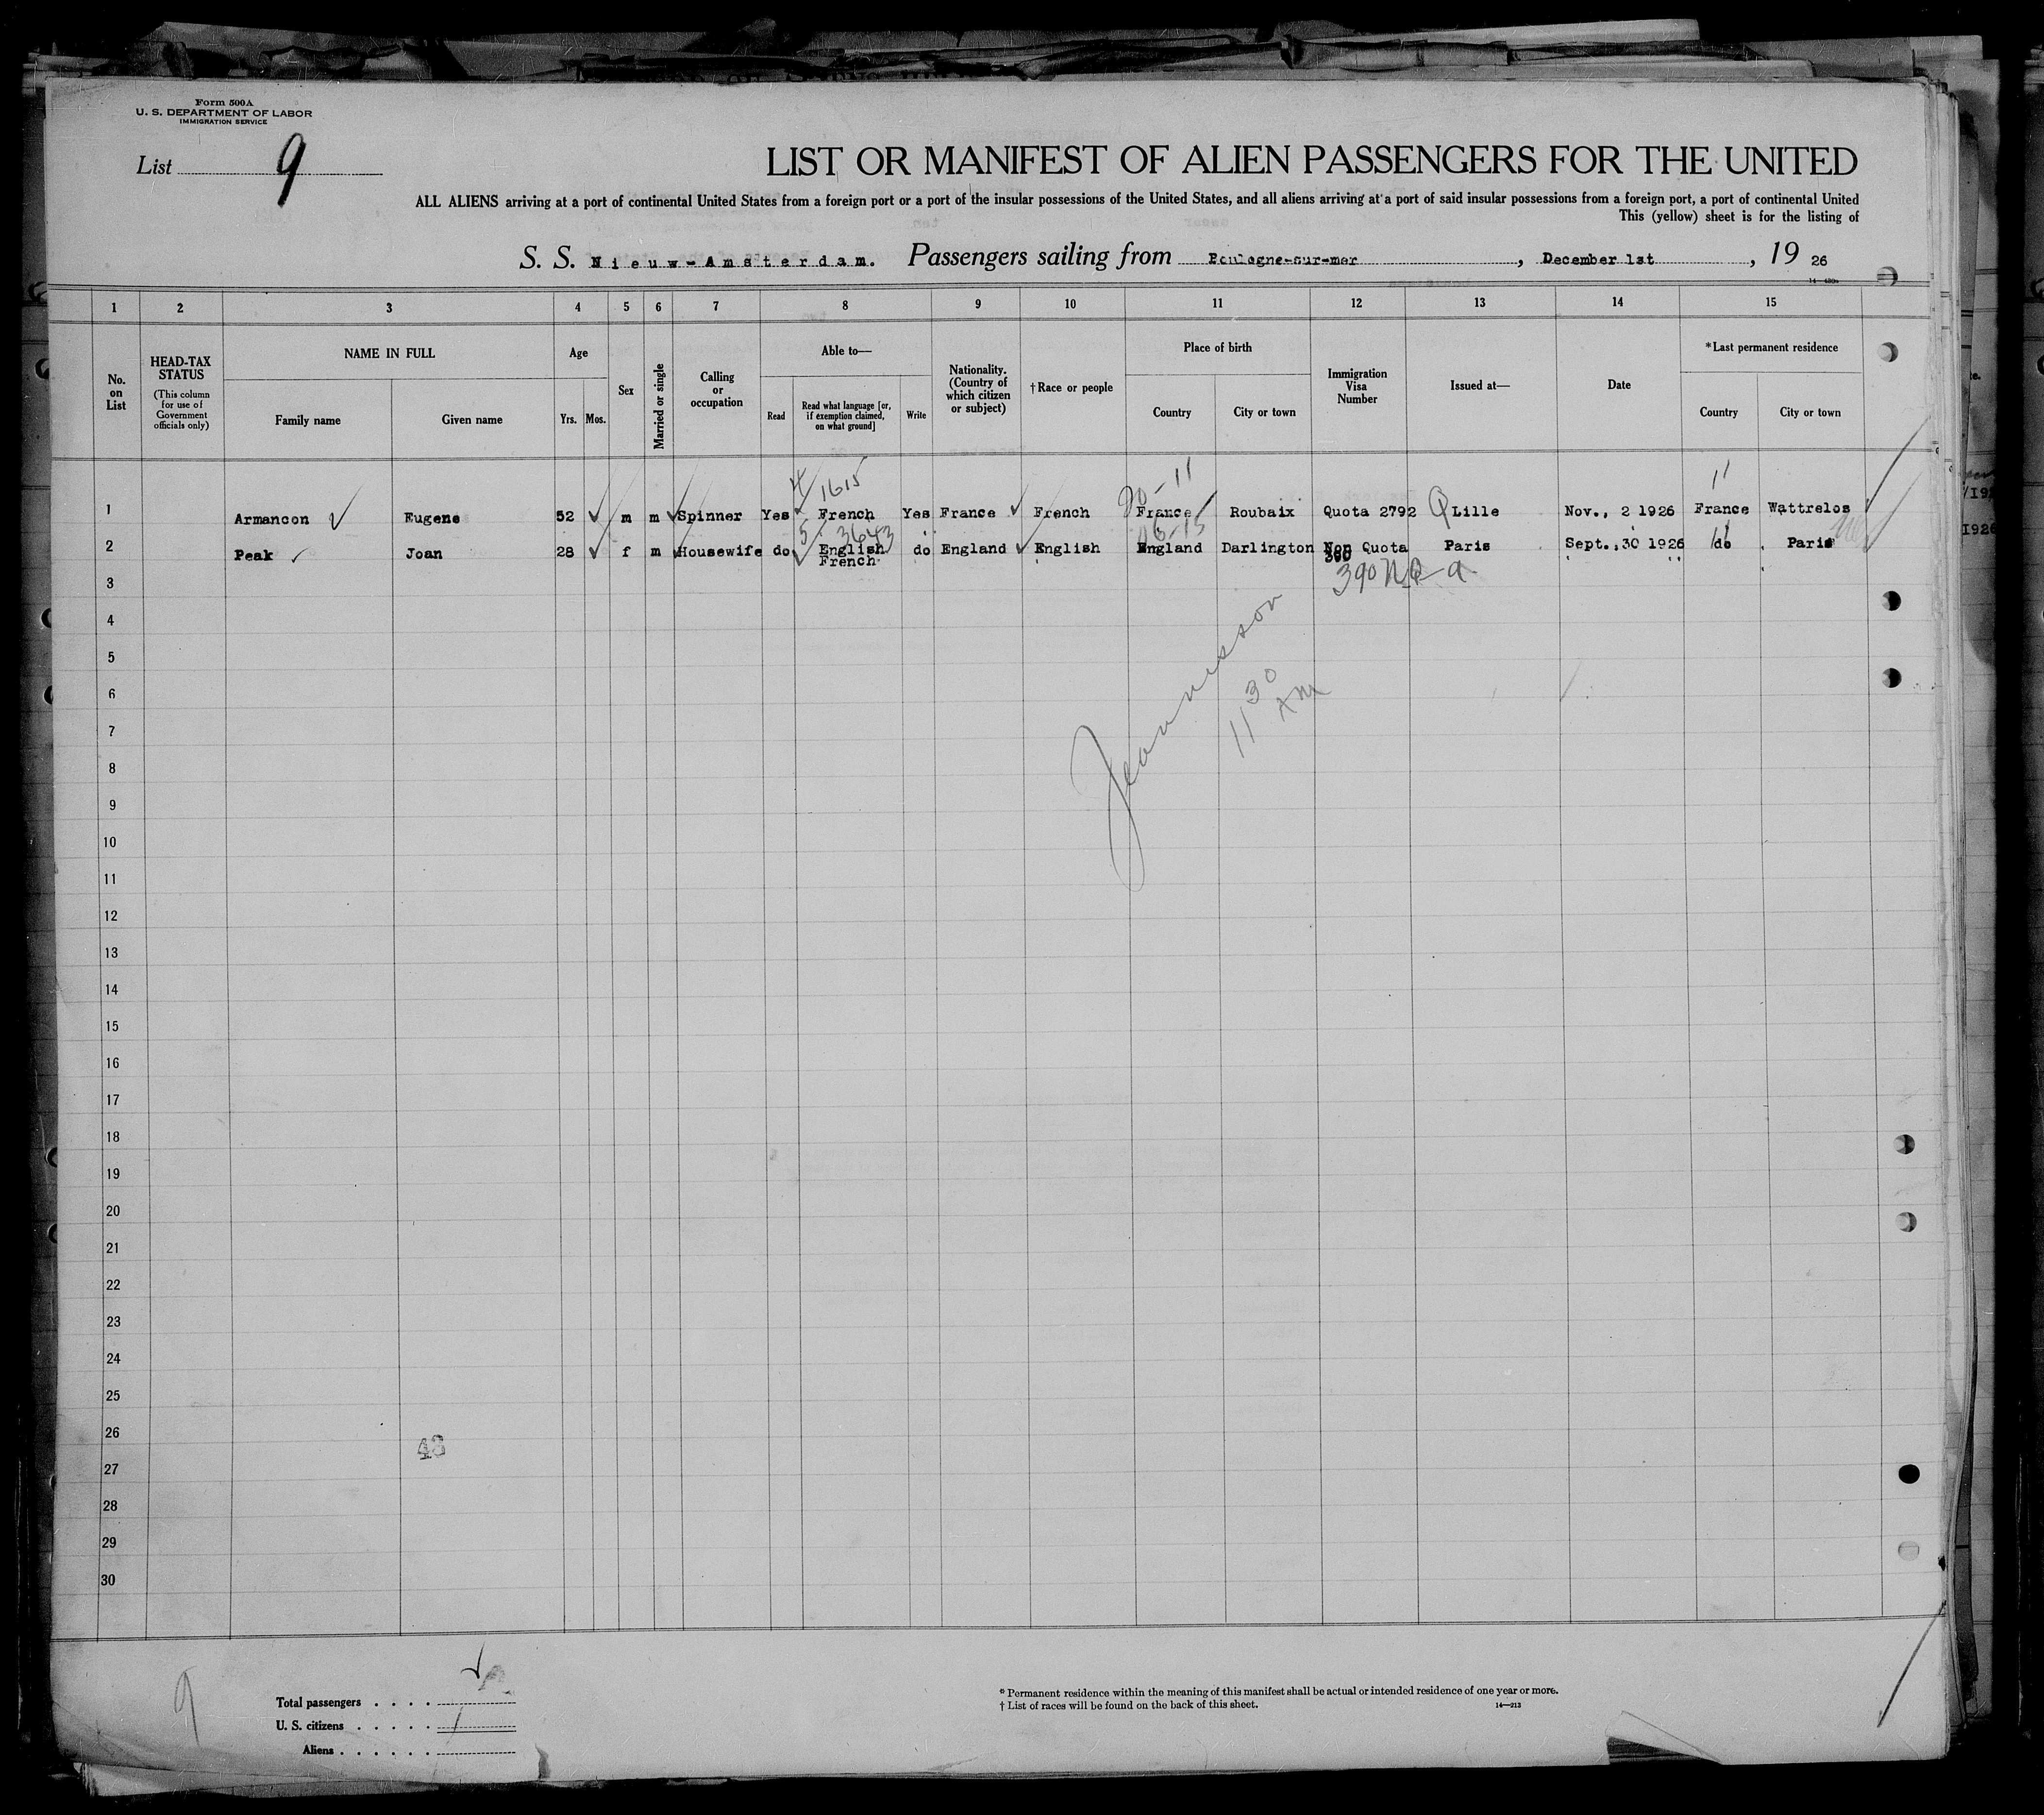 Form 500A
U. S. DEPARTMENT OF LABOR
IMMIGRATION SERVICE
List 9
LIST OR MANIFEST OF ALIEN PASSENGERS FOR THE UNITED
ALL ALIENS arriving at a port of continental United States from a foreign port or a port of the insular possessions of the United States, and all aliens arriving at a port of said insular possessions from a foreign port, a port of continental United
This (yellow) sheet is for the listing of
S. S. Nieuw-Amsterdam. Passengers sailing from Boulogne-sur-mer, December 1st, 19 26
1 2 3 4 5 6 7 8 9 10 11 12 13 14 15
No. on List
HEAD-TAX STATUS
(This column for use of Government officials only)
NAME IN FULL
Family name Given name
Age
Yrs. Mos.
Sex
Married or single
Calling or occupation
Able to—
Read
Read what language [or, if exemption claimed, on what ground]
Write
Nationality. (Country of which citizen or subject)
†Race or people
Place of birth
Country City or town
Immigration Visa Number
Issued at—
Date
*Last permanent residence
Country City or town
4/1615 90-11 11
1 Armancon Eugene 52 m m Spinner Yes French Yes France French France Roubaix Quota 2792 Q Lille Nov., 2 1926 France Wattrelos
5/3643 06-15 11
2 Peak Joan 28 f m Housewife do English do England English England Darlington Non Quota Paris Sept.,30 1926 do Paris
French 390
3 390 NQ-a
4
5
6
7
8
9
10
11
12
13
14
15
16
17
18
19
20
21
22
23
24
25
26
27
28
29
30
11 30 AM
48
9
Total passengers
U. S. citizens
Aliens
* Permanent residence within the meaning of this manifest shall be actual or intended residence of one year or more.
† List of races will be found on the back of this sheet. 14—213